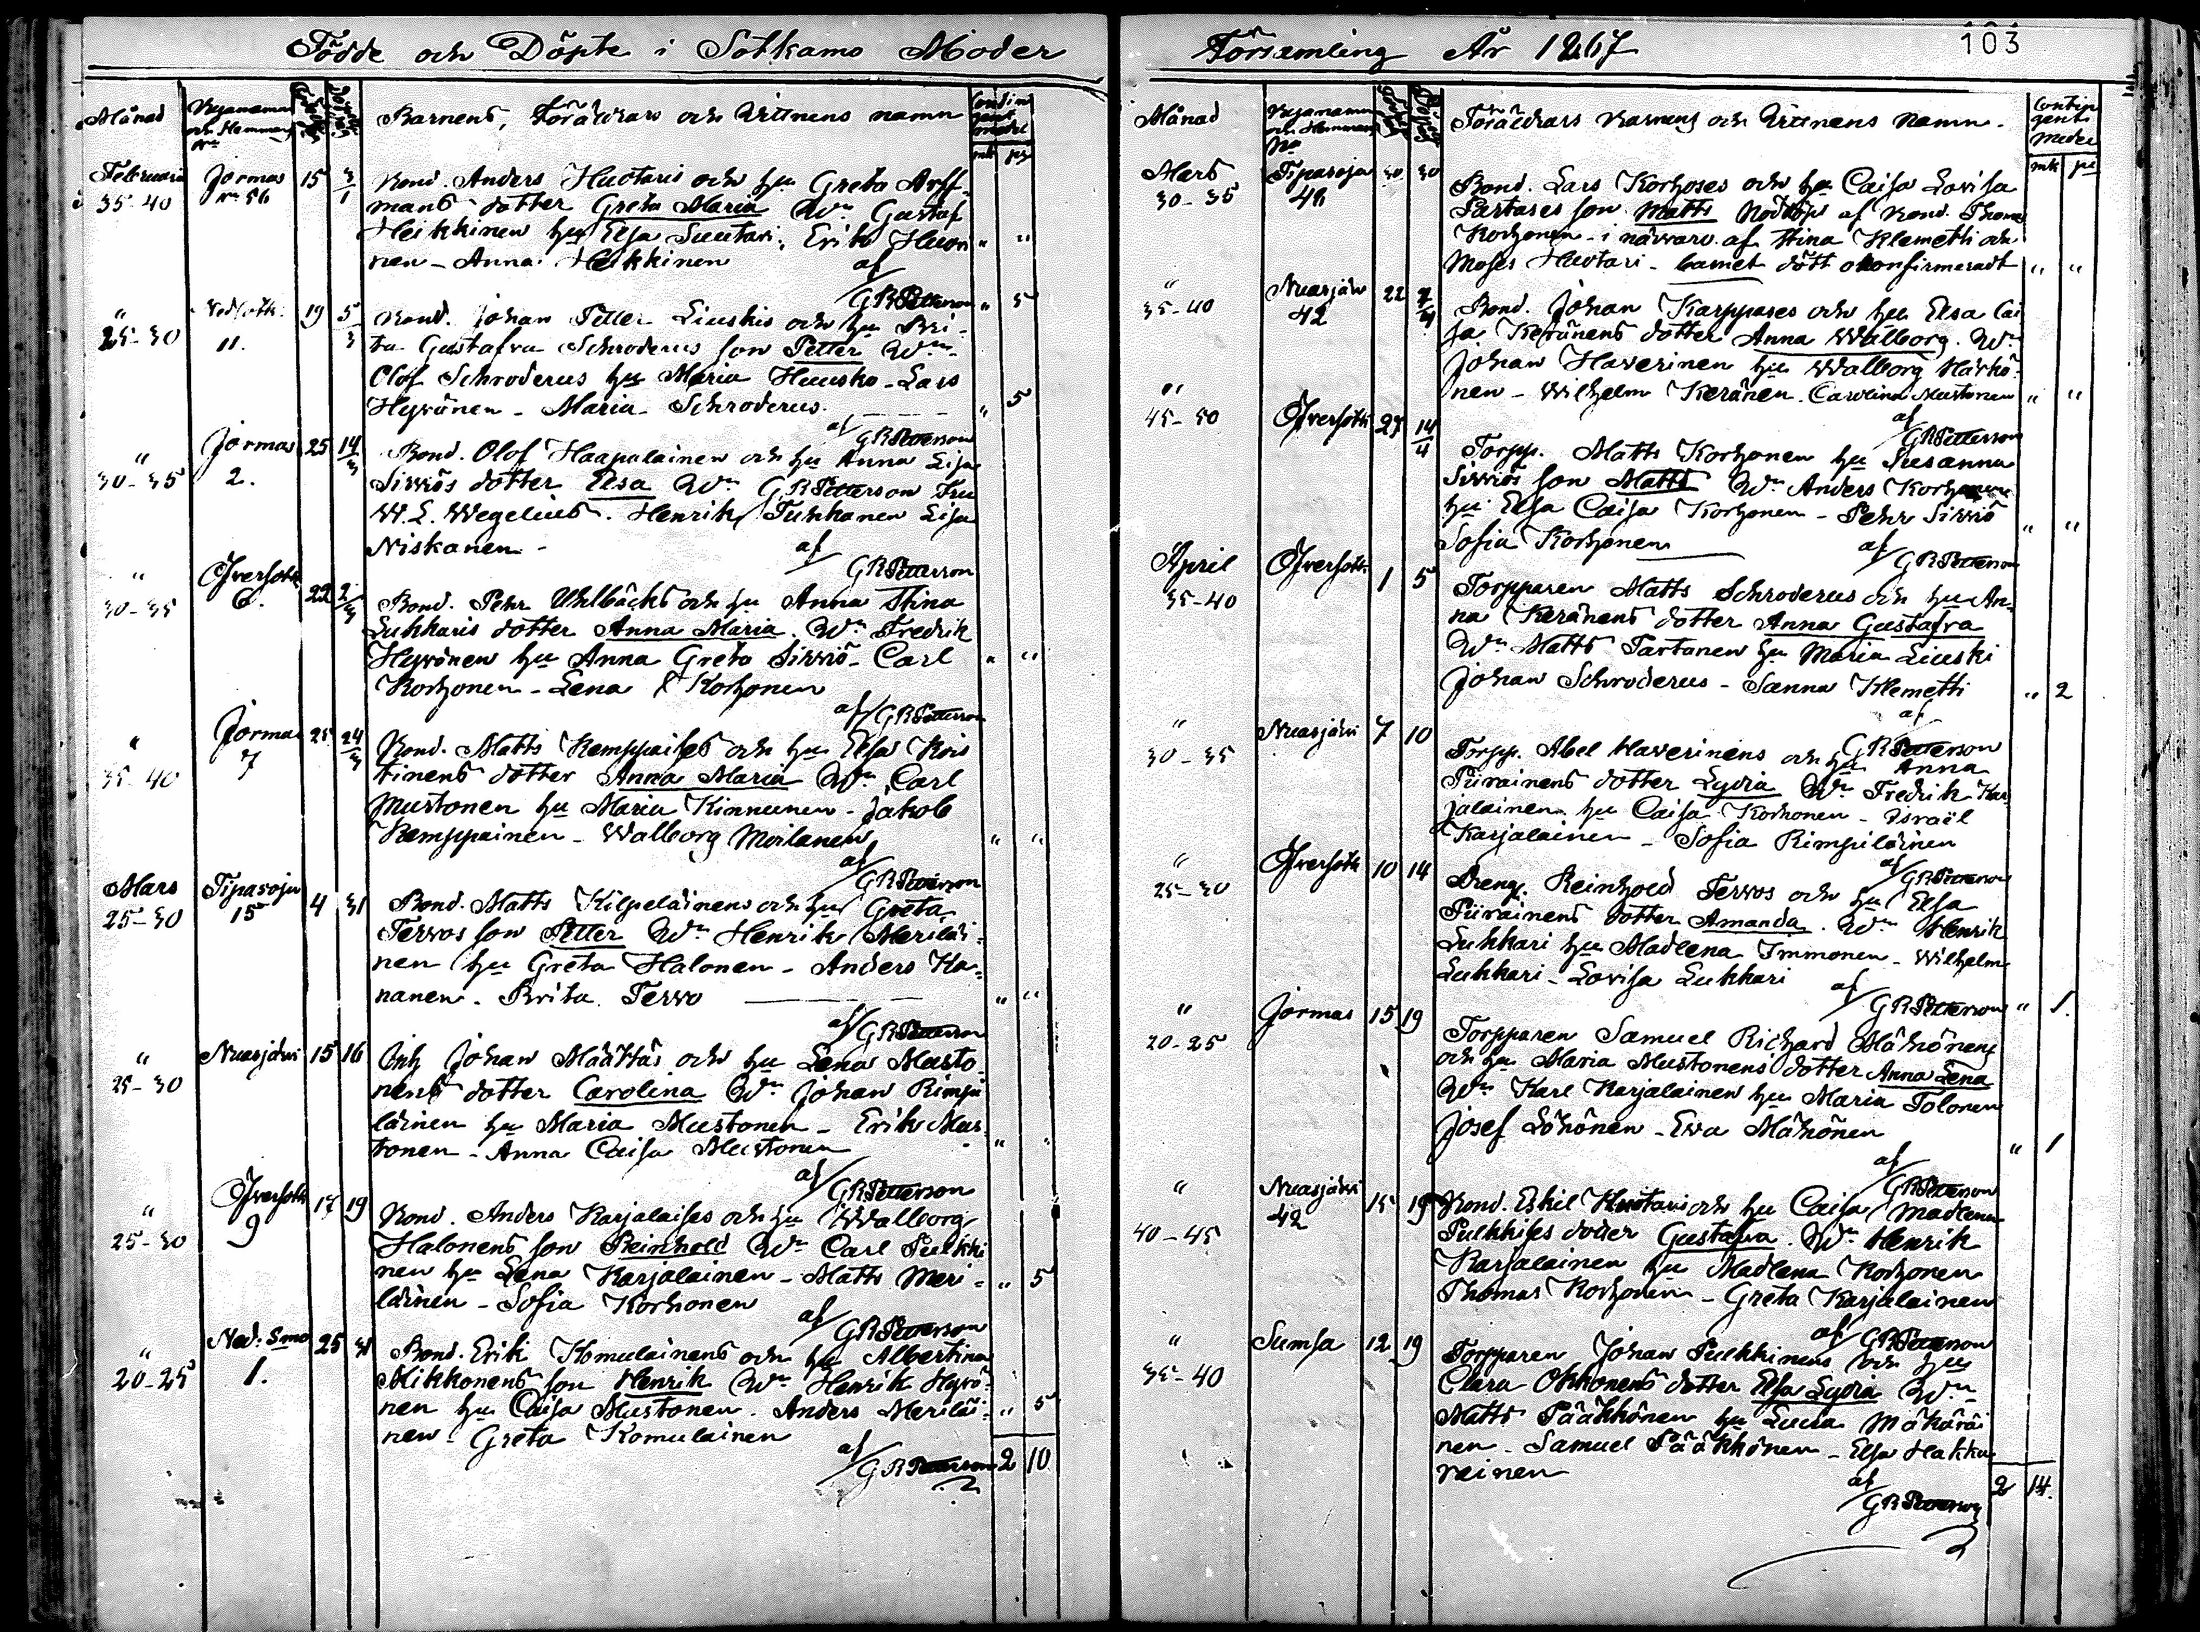 Födde och Döpte i Sotkamo Moder
Månad
Byanamn och Hemmans No
Barnens, Föräldrars och Vittnens namn
mk pi
Februarii Jormas 15 3/1 Bond. Anders Huotaris och hu Greta Arff-
35-40 No 56 mans dotter Greta Maria Wn Gustaf
Heikkinen hu Elsa Suutari, Erik Huovi " "
nen - Anna Heikkinen af
G R Petterson " 5
" 19 5/3 Bond. Johan Petter Liuskis och hu Bri-
25-30 11. ta Gustafva Schroderus son Petter Wn
Olof Schroderus hu Maria Huusko - Lars
Hyvönen - Maria Schroderus. " 5
af G R Petterson
" Jormas 25 14/3 Bond. Olof Haapalainen och hu Anna Lisa
30-35 2. Sirviös dotter Elsa Wn G R Petterson Fru
W. L. Wegelius. Henrik Tuhkanen Lisa
Niskanen - af
G R Petterson
" Öfversotk 22 2/3 Bond. Pehr Uhlbäcks och hu Anna Stina
30-35 6. Lukkaris dotter Anna Maria. Wn Fredrik
Hyvönen hu Anna Greta Sirviö - Carl " "
Korhonen - Lena Korhonen
af G R Petterson
" Jormas 25 24/3 Bond. Matts Kemppaises och hu Elsa Kois
35-40 7 tinens dotter Anna Maria Wn Carl
Mustonen hu Maria Kinnunen - Jakob
Kemppainen - Walborg Moilanen " "
af G R Petterson
Mars Tipasoja 4 31 Bond. Matts Kilpeläinens och hu Greta
25-30 15 Tervos son Petter Wn Henrik Meriläi-
nen hu Greta Halonen - Anders Ha-
nanen. Brita Tervo " "
af G R Petterson
" Nuasjärvi 15 16 Inh Johan Määttäs och hu Lena Musto-
25-30 nens dotter Carolina Wn Johan Rimpi
läinen hu Maria Mustonen - Erik Mus
tonen - Anna Caisa Mustonen " "
af G R Petterson
" Öfversotk 17 19 Bond. Anders Karjalaises och hu Walborg
25-30 9 Halonens son Reinhold Wn Carl Pulkki
nen hu Lena Karjalainen - Matts Meri- " 5
läinen - Sofia Korhonen
af G R Petterson
" Ned: Smo 25 31 Bond. Erik Komulainens och hu Albertina
20-25 1. Mikkonens son Henrik Wn Henrik Hyvö-
nen hu Caisa Mustonen. Anders Meriläi- " 5
nen - Greta Komulainen
af G R Petterson 2 10
Församling År 1867 103
Månad
Byanamn och Hemmans No
Föräldrars Barnens och Vittnens Namn.
mk pi
Mars Tipasoja 30 30 Bond. Lars Korhoses och hu Caisa Lovisa
30-35 46 Partases son Matts Nöddöpt af Bond. Thomas
Korhonen - i närvaro af Stina Klemetti och
Moses Huotari - barnet dött okonfirmeradt " "
" Nuasjärv 22 7/4 Bond. Johan Karppases och hu Elsa Cai
35-40 42 sa Keränens dotter Anna Walborg. Wn
Johan Haverinen hu Walborg Härkö-
nen - Wilhelm Keränen. Carolina Mustonen " "
af G R Petterson
" 45-50 Öfversotk 27 14/4 Torpp. Matts Korhonen hu Susanna
Sirviös son Matts Wn Anders Korhonen
hu Elsa Caisa Korhonen - Pehr Sirviö " "
Sofia Korhonen af
G R Petterson
April Öfversotk 1 5 Torpparen Matts Schroderus och hu An-
35-40 na Keränens dotter Anna Gustafva
Wn Matts Tartanen hu Maria Liuski
Johan Schroderus - Sanna Klemetti " 2
af G R Petterson
" Nuasjärvi 7 10 Torpp. Abel Haverinens och hu Anna
30-35 Piirainens dotter Lydia Wn Fredrik Kar
jalainen hu Caisa Korhonen - Israël
Karjalainen - Sofia Rimpiläinen
af G R Petterson
" Öfversotk 10 14 Dreng. Reinhold Tervos och hu Elsa
25-30 Piirainens dotter Amanda. Wn Henrik
Lukkari hu Madlena Immonen - Wilhelm
Lukkari - Lovisa Lukkari
af G R Petterson " 1.
" Jormas 15 19 Torpparen Samuel Richard Mähönens
20-25 och hu Maria Mustonens dotter Anna Lena
Wn Karl Karjalainen hu Maria Tolonen
Josef Löhönen - Ewa Mähönen
" 1
af G R Petterson
" Nuasjärvi 15 19 Bond. Eskil Huotaris och hu Caisa Madlena
40-45 42 Pulkkises dotter Gustafva. Wn Henrik
Karjalainen hu Madlena Korhonen
Thomas Korhonen - Greta Karjalainen
af G R Petterson
" Sumsa 12 19 Torpparen Johan Pulkkinens och hu
35-40 Clara Okkonens dotter Elsa Lydia Wn
Matts Pääkkönen hu Lucia Mökäräi
nen - Samuel Pääkkönen - Elsa Hakka
rainen
af G R Petterson 2 14.